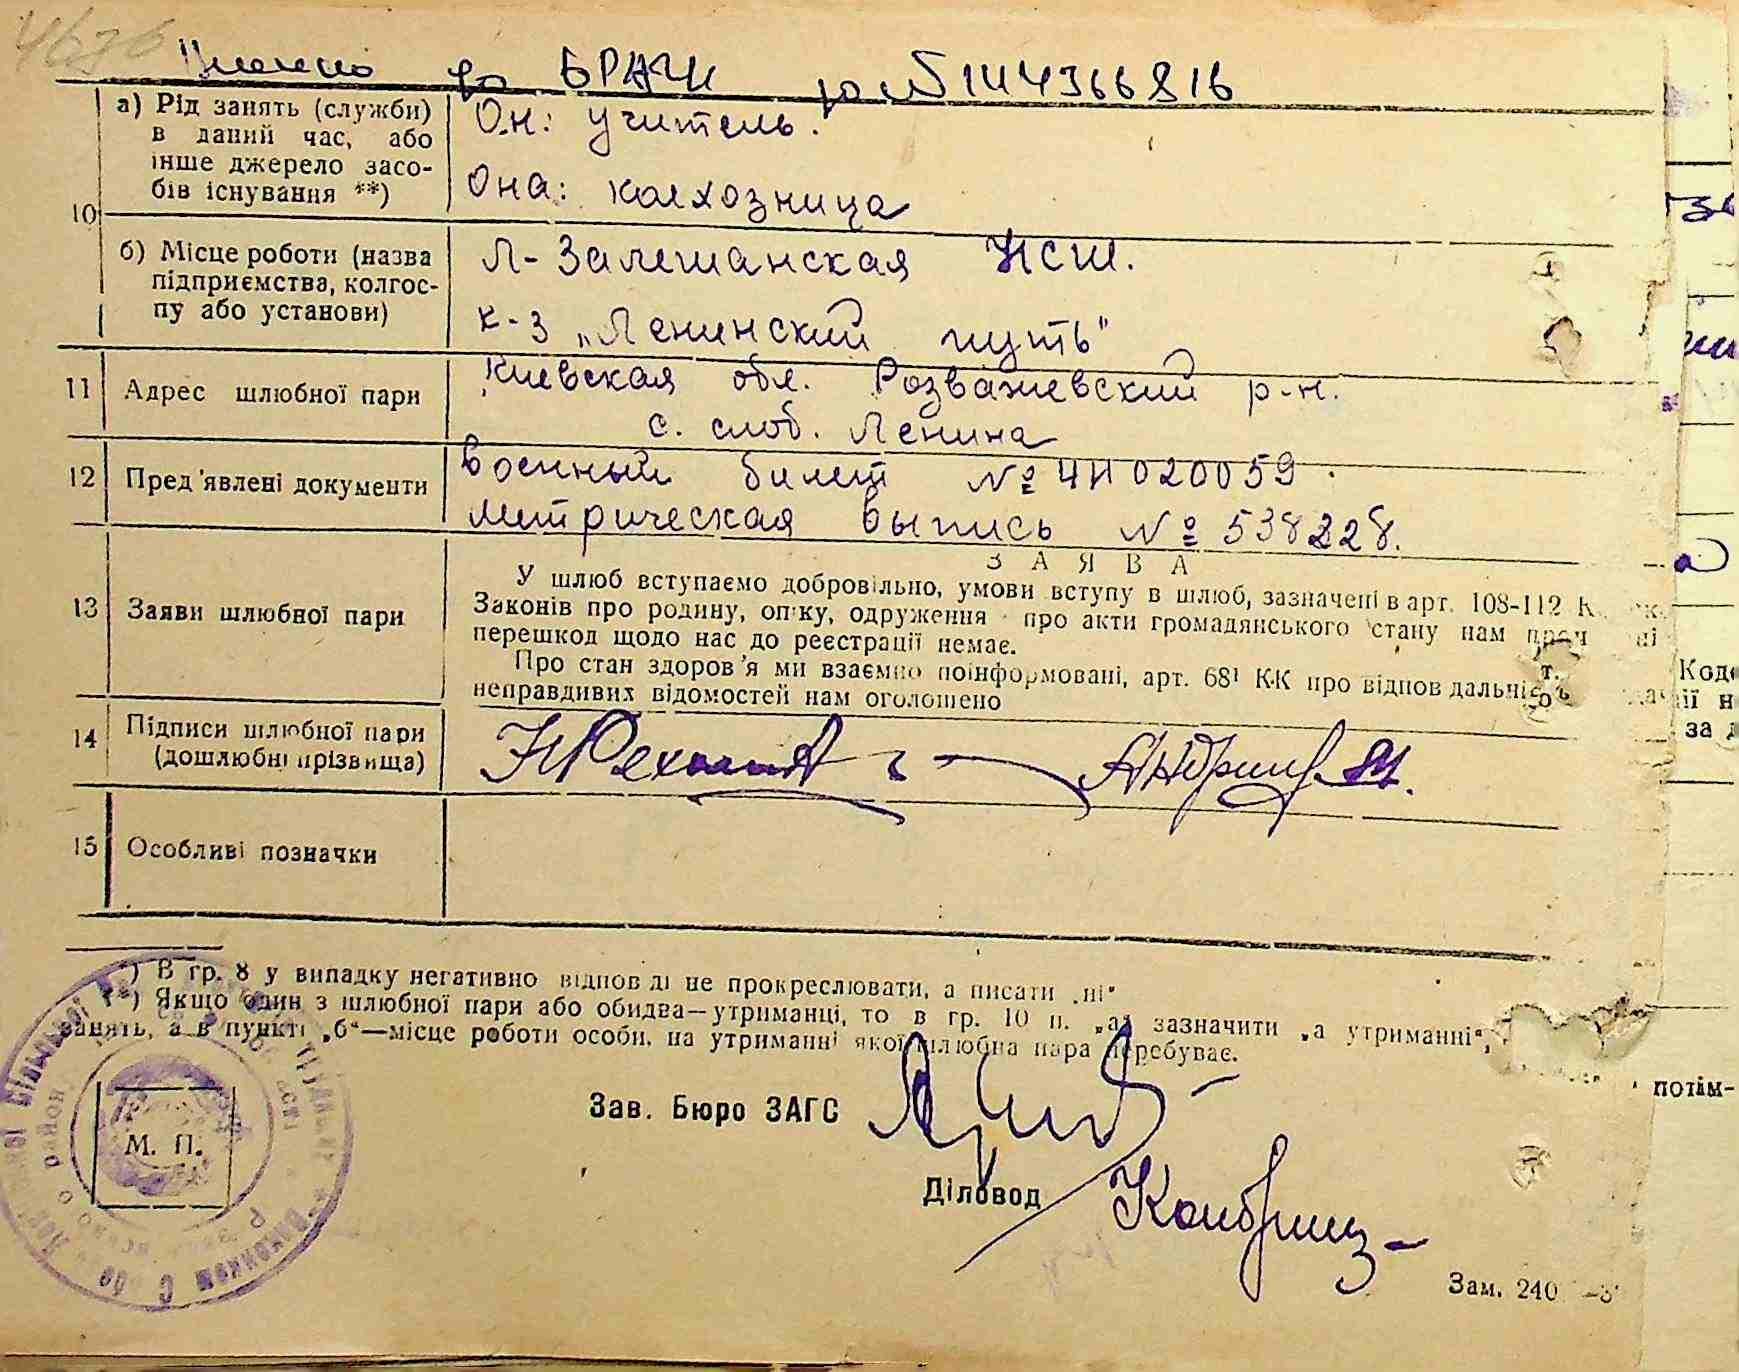 4676
за БРАЧН за № 144366816
10 а) Рід занять (служби) в даний час, або інше джерело засобів існування **)
Он: учитель.
Она: колхозница
б) Місце роботи (назва підприємства, колгоспу або установи)
Л-Залешанская НСШ.
к-з „Ленинский путь"
11 Адрес шлюбної пари
Киевская обл. Розважевский р-н.
с. слоб. Ленина
12 Пред'явлені документи
Военный билет № ЧН 020059.
Метрическая выпись № 538228.
13 Заяви шлюбної пари
ЗАЯВА
У шлюб вступаємо добровільно, умови вступу в шлюб, зазначені в арт. 108-112
Законів про родину, опіку, одруження про акти громадянського стану нам
перешкод щодо нас до реєстрації немає.
Про стан здоров'я ми взаємно поінформовані, арт. 68¹ КК про відповідальність
неправдивих відомостей нам оголошено
14 Підписи шлюбної пари (дошлюбні прізвища)
15 Особливі позначки
*) В гр. 8 у випадку негативно відповіді не прокреслювати, а писати „ні"
**) Якщо один з шлюбної пари або обидва—утриманці, то в гр. 10 п. „а" зазначити „а утриманні",
занять, а в пункті „б"—місце роботи особи, на утриманні якої шлюбна пара перебуває.
Зав. Бюро ЗАГС
М. П.
Діловод
Зам. 240